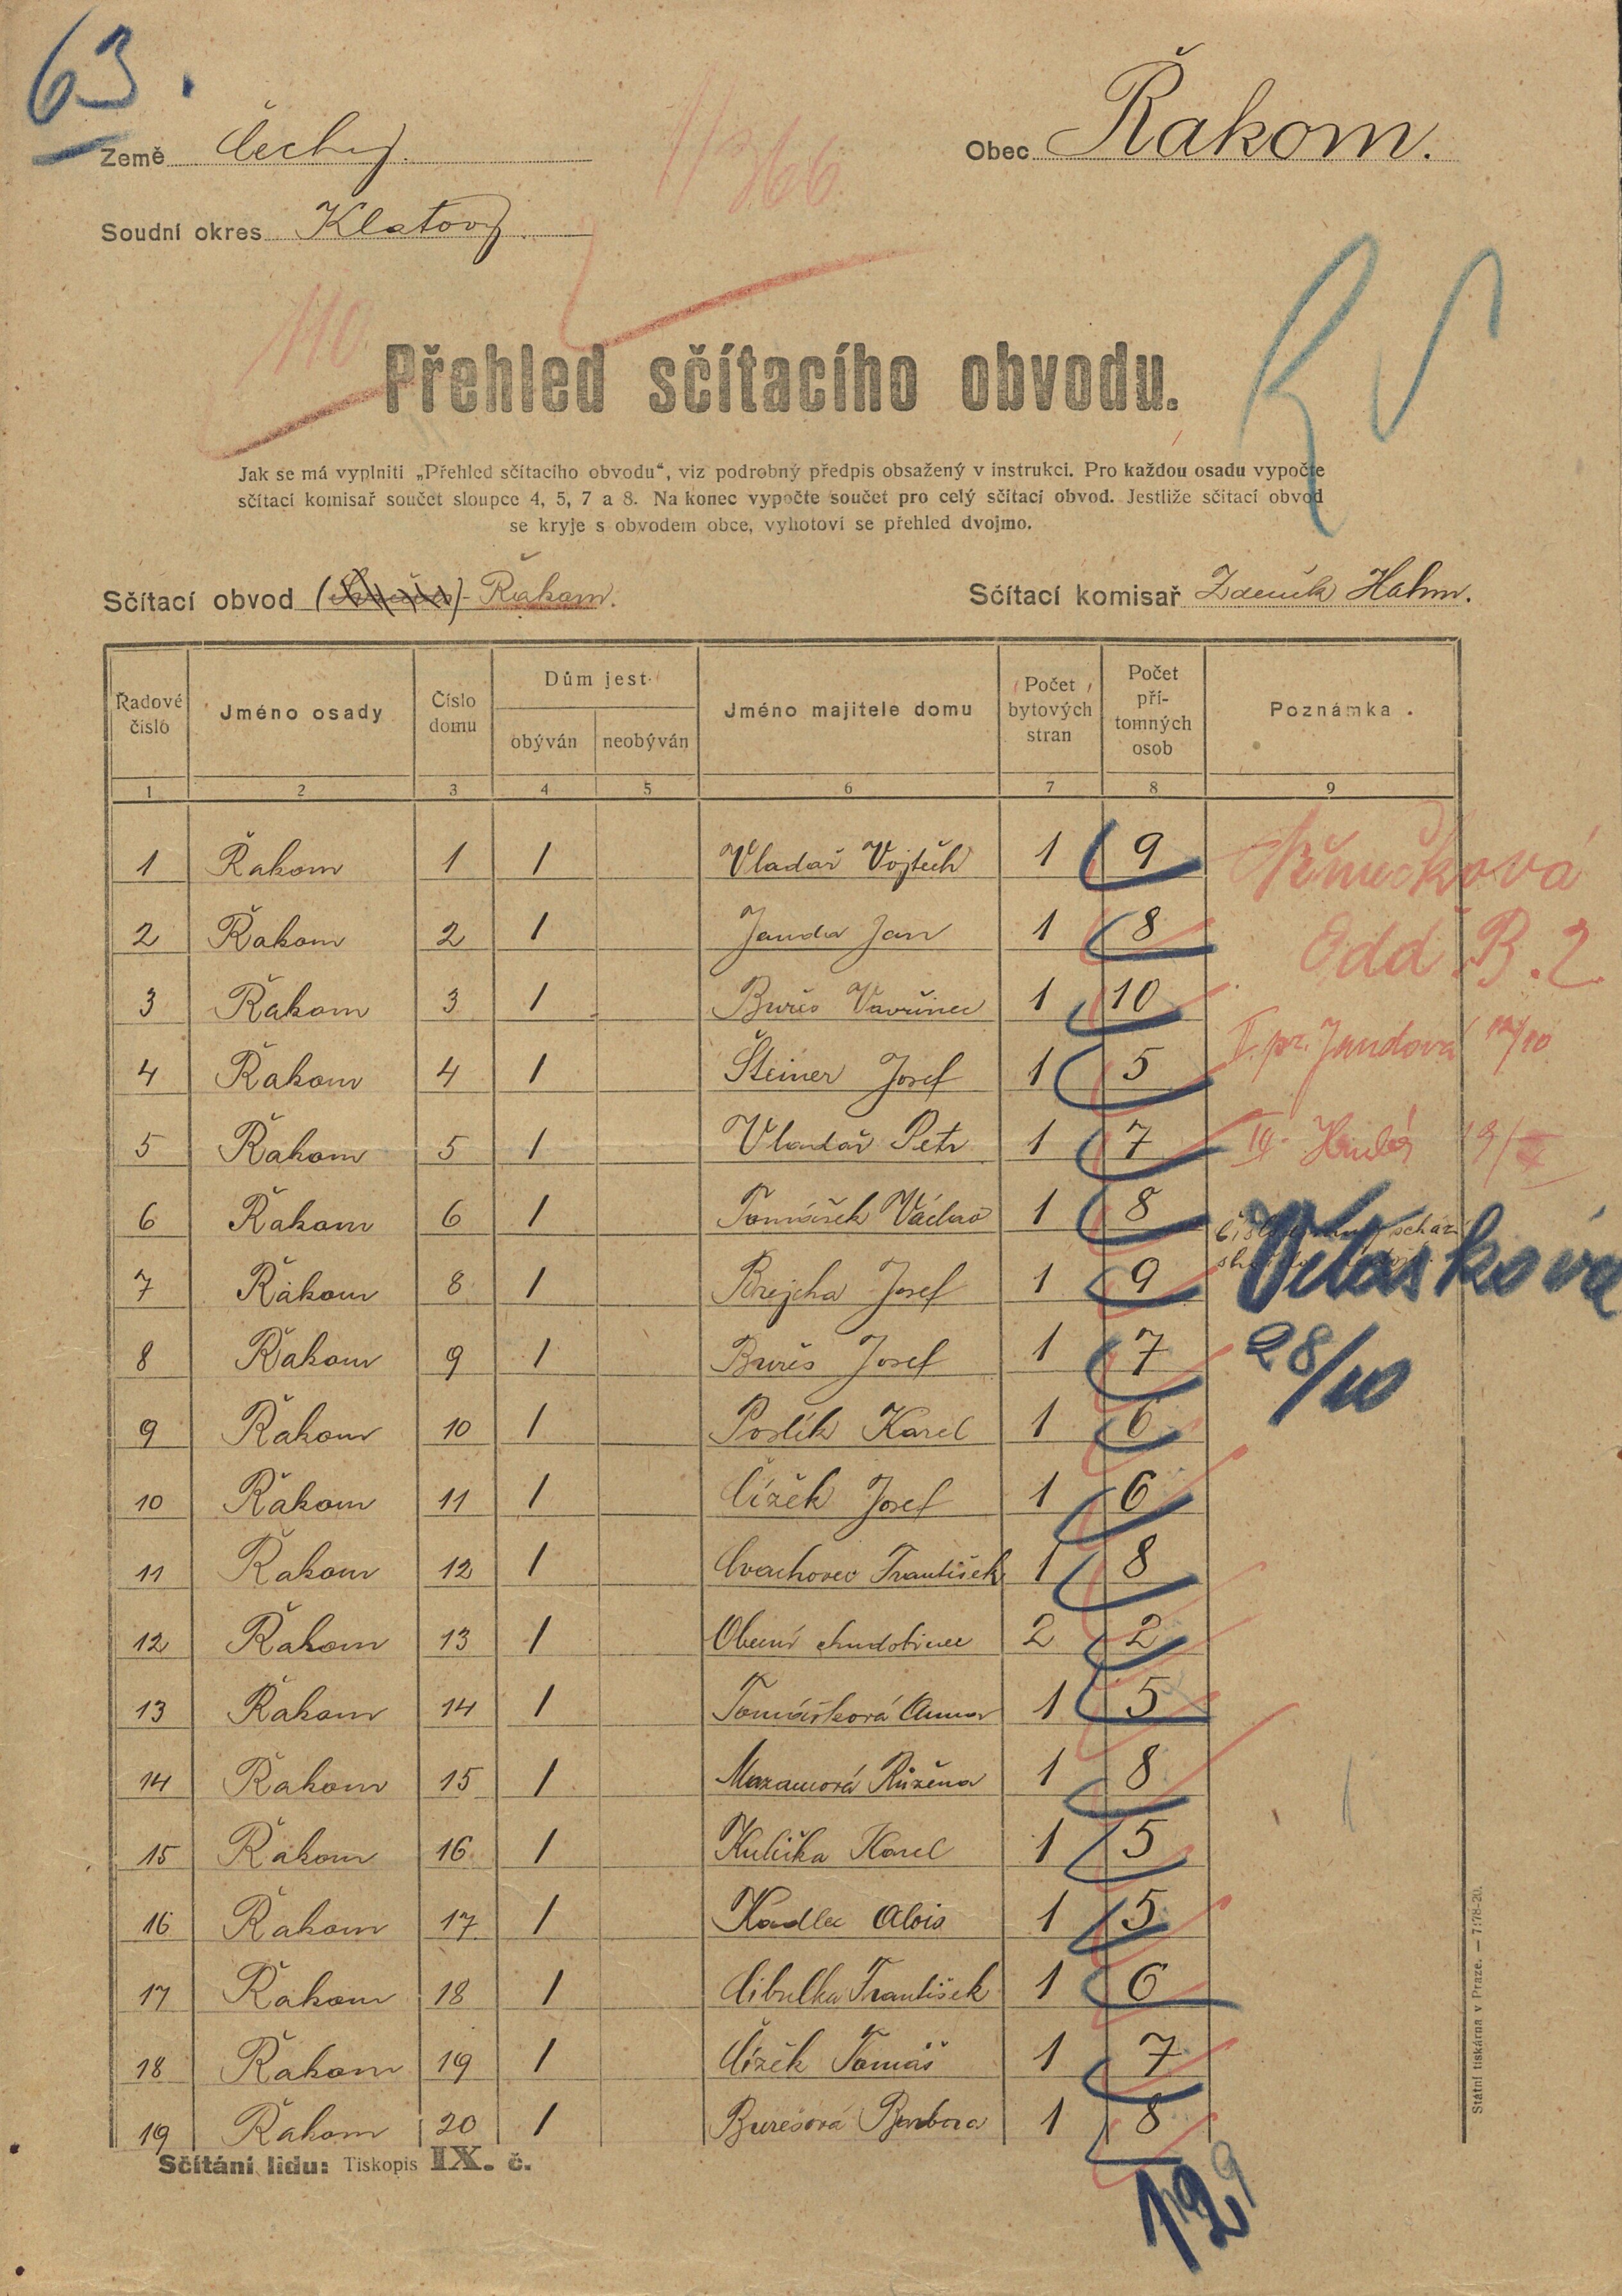 63.
Země Čechy.
Obec Řakom.
11366
Soudní okres Klatovy.
110
Přehled sčítacího obvodu.
Jak se má vyplniti „Přehled sčítacího obvodu“, viz podrobný předpis obsažený v instrukci. Pro každou osadu vypočte
sčítací komisař součet sloupce 4, 5, 7 a 8. Na konec vypočte součet pro celý sčítací obvod. Jestliže sčítací obvod
se kryje s obvodem obce, vyhotoví se přehled dvojmo.
Sčítací obvod Řakom.
Sčítací komisař Zdeněk Hahn.
Řadové číslo Jméno osady Číslo domu Dům jest obýván neobýván Jméno majitele domu Počet bytových stran Počet přítomných osob Poznámka.
1 2 3 4 5 6 7 8 9
1 Řakom 1 1 Vladař Vojtěch 1 9
Němečková
2 Řakom 2 1 Janda Jan 1 8
Odd. B. 2
3 Řakom 3 1 Bureš Vavřinec 1 10
II. pr. Jandová 12/10
4 Řakom 4 1 Šteiner Josef 1 5
5 Řakom 5 1 Vladař Petr 1 7
6 Řakom 6 1 Tomášek Václav 1 8
schází
7 Řakom 8 1 Brejcha Josef 1 9
Vlásková
8 Řakom 9 1 Bureš Josef 1 7
28/10
9 Řakom 10 1 Poslík Karel 1 6
10 Řakom 11 1 Čížek Josef 1 6
11 Řakom 12 1 Cvachovec František 1 8
12 Řakom 13 1 Obecní chudobinec 2 2
13 Řakom 14 1 Tomášková Anna 1 5
14 Řakom 15 1 Růžena 1 8
15 Řakom 16 1 Kulička Karel 1 5
16 Řakom 17 1 Kadlec Alois 1 5
17 Řakom 18 1 Cibulka František 1 6
18 Řakom 19 1 Čížek Tomáš 1 7
19 Řakom 20 1 Burešová Barbora 1 8
Sčítání lidu: Tiskopis IX. č.
129
Státní tiskárna v Praze. — 7178-20.